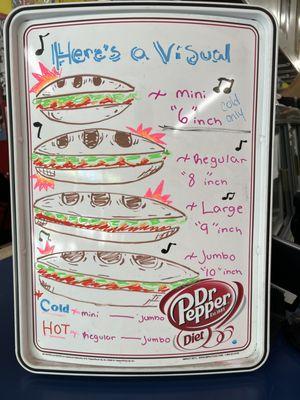 Here's a Visual
~ mini
"6" inch
cold only
~ Regular
"8" inch
~ Large
"9" inch
~ Jumbo
"10" inch
Cold ~ mini — jumbo
HOT ~ Regular — jumbo
Dr Pepper
Diet